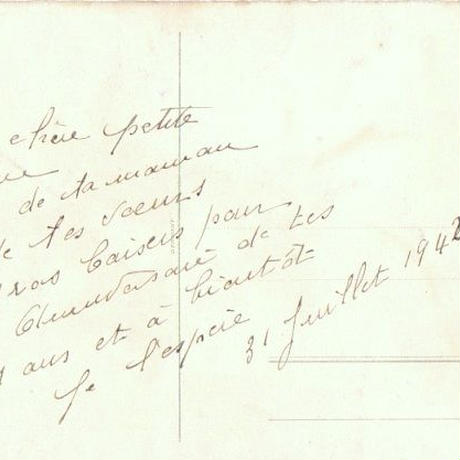 chère petite
de ta maman
de tes soeurs
gros baisers pour
Anniversaire de tes
ans et à bientôt
je l'espère
31 Juillet 1942